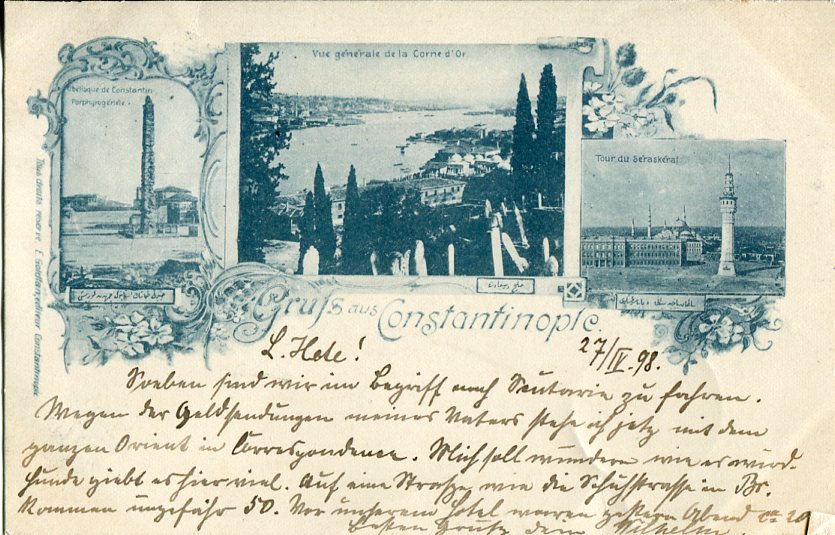 Obélisque de Constantin
Porphyrogénète.
Vue générale de la Corne d'Or
Tour du Séraskérat
Tous droits réservé E. Goldfarb, éditeur Constantinople
Gruss aus Constantinople.
L. Hete!
27/IV. 98.
Soeben sind wir im Begriff nach Scutarie zu fahren.
Wegen der Geldsendungen meines Vaters stehe ich jetz mit dem
ganzen Orient in Correspondence. Mich soll wundern wie es wird.
Hunde giebt es hier viel. Auf eine Strasse wie die Schuhstrasse in Br.
kommen ungefähr 50. Vor unserem Hotel waren gestern Abend ca 20
besten Gruss dein Wilhelm.